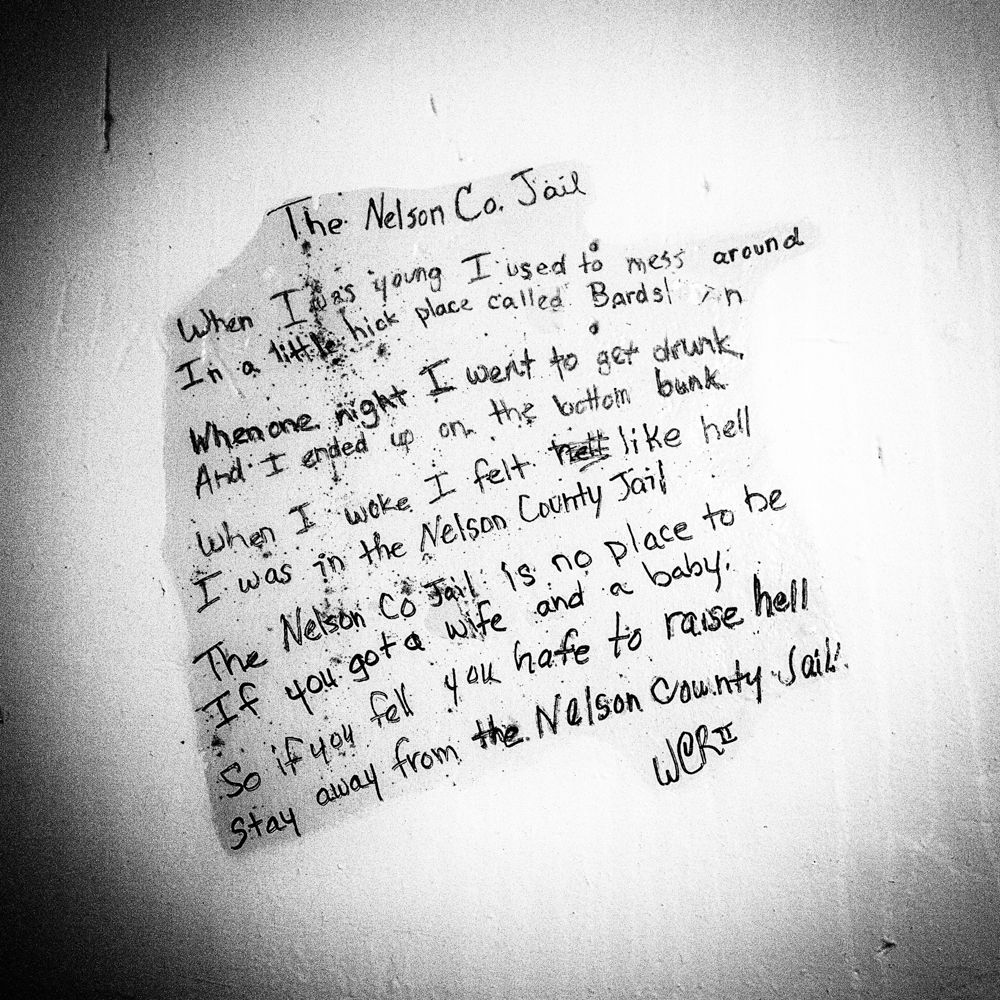 The Nelson Co. Jail
When I was young I used to mess around
In a little hick place called
When one night I went to get drunk,
And I ended up on the bottom bunk.
When I woke I felt hell like hell
I was in the Nelson County Jail
The Nelson Co Jail is no place to be
If you got a wife and a baby.
So if you fell you hafe to raise hell
Stay away from the Nelson County Jail!
WCR II